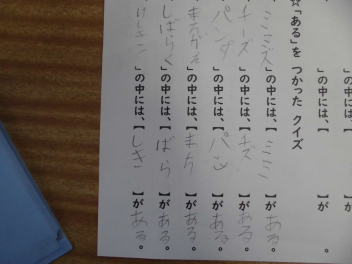 」の中には、【 】が
」の中には、【 】が 。
☆「ある」を つかった クイズ
ミミズ」の中には、【ミミ】がある。
チーズ」の中には、【チズ】がある。
パンダ」の中には、【パン】がある。
」の中には、【まち】がある。
しばらく」の中には、【ばら】がある。
」の中には、【しき】がある。